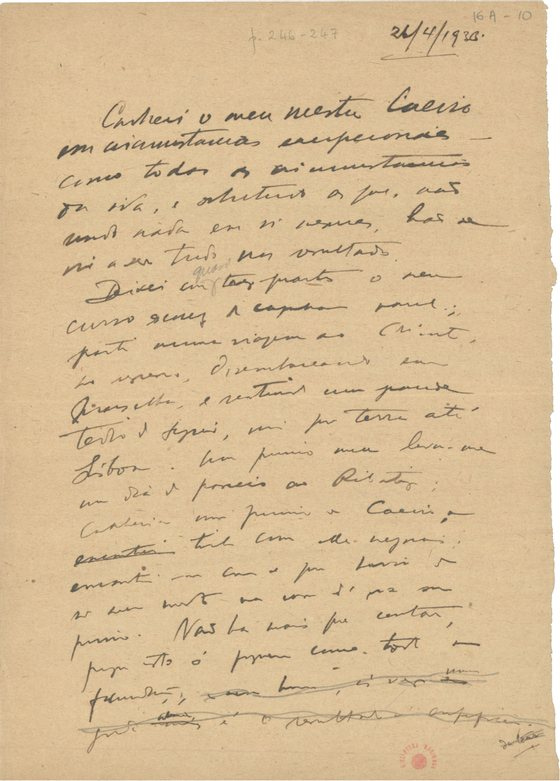 16A-10
p. 246-247
Conheci o meu mestre Caeiro
em circumstancias excepcionaes —
como todas as circumstancias
da vida, e sobretudo as que, não
sendo nada em si mesmas, hão de
vir a ser tudo nos resultados.
Deixei em quasi tres quartos o meu
curso de
parti numa viagem ao Oriente;
no regresso, desembarcando em
Marselha, e sentindo um grande
tedio de seguir, vim por terra até
Lisboa. Um primo meu levou-me
um dia de passeio ao Ribatejo;
conhecia um primo de Caeiro, e
tinha com elle negocios;
encontrei-me com o que havia de
ser meu mestre na casa d'esse seu
primo. Não ha mais que contar,
porque isto é pequeno, como toda a
fecundação;
é o resultado